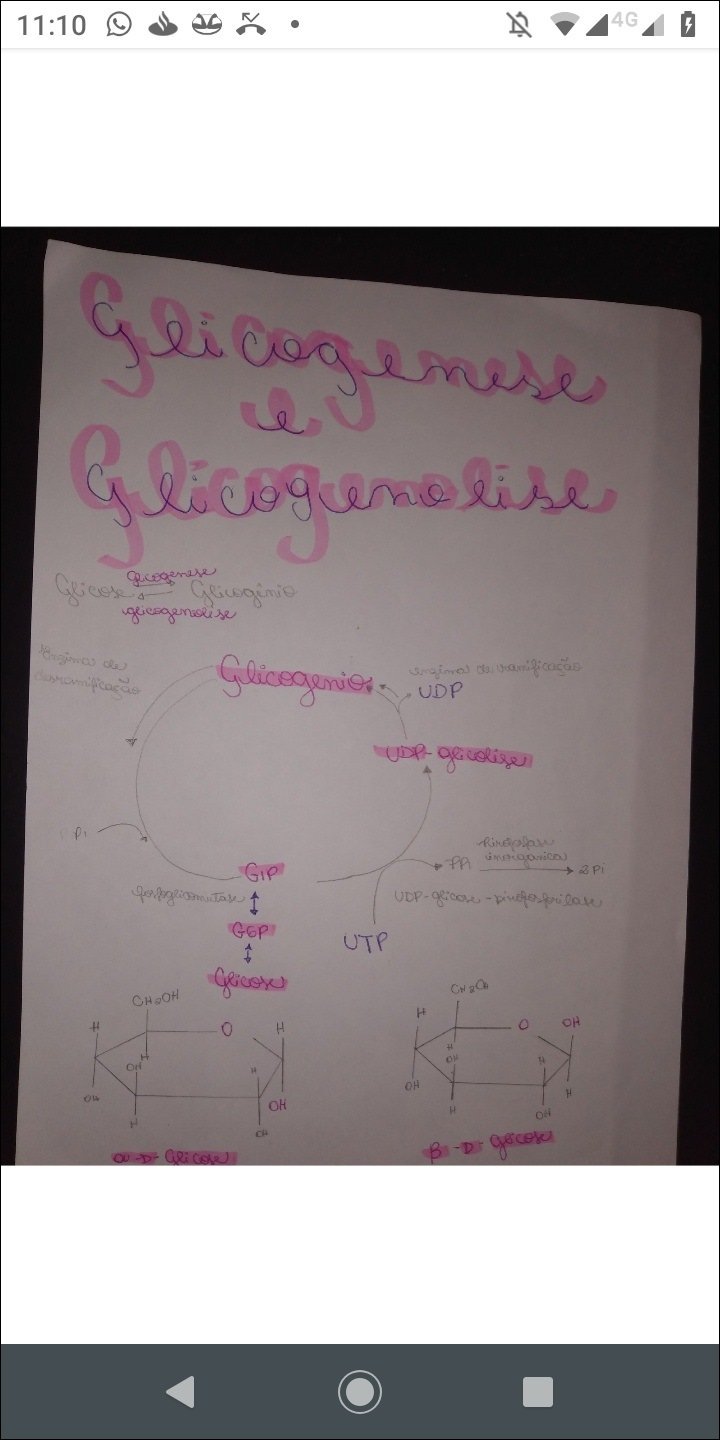 11:10
4G
Glicogenese
e
Glicogenolise
glicogenese
Glicose Glicogênio
glicogenolise
Enzima de
desramificação
Glicogenio
enzima de ramificação
UDP
UDP-glicolise
Pi
G1P
PPi
inorganica
2Pi
fosfoglicomutase
UDP-glicose-pirofosforilase
G6P
UTP
Glicose
CH2OH
H O H
H
OH H
OH OH
H OH
α-D-Glicose
H O OH
H
OH H
OH H
H OH
β-D-Glicose